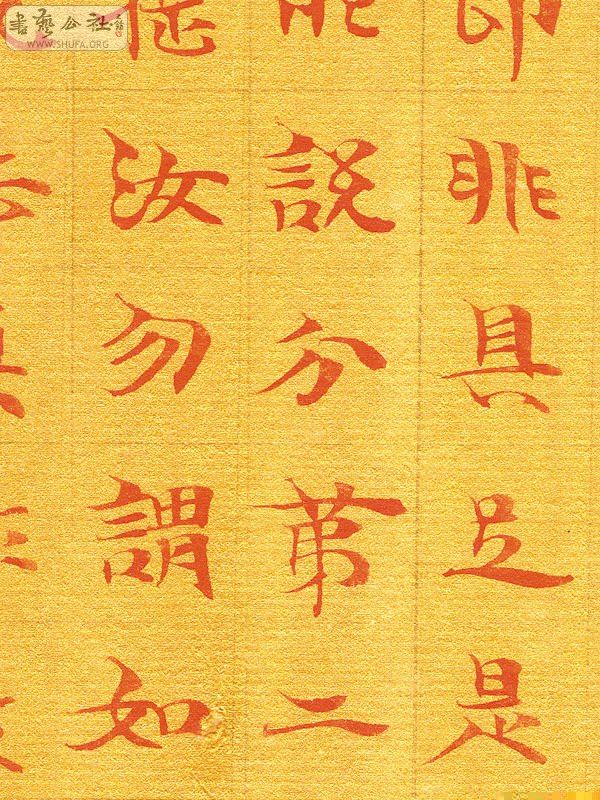 書藝公社
WWW.SHUFA.ORG
即非具足是
說分第二
提汝勿謂如